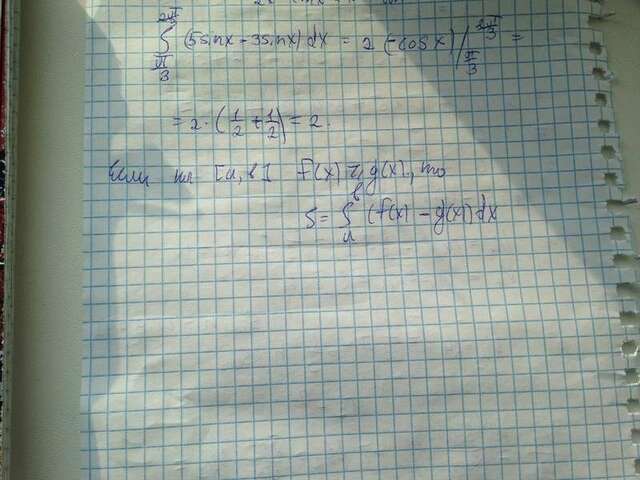 ∫_{π/3}^{2π/3} (5sinx - 3sinx)dx = 2(-cosx)|_{π/3}^{2π/3} =
= 2·(1/2 + 1/2) = 2.
Если на [a, b] f(x) ≥ g(x), то
S = ∫_a^b (f(x) - g(x))dx